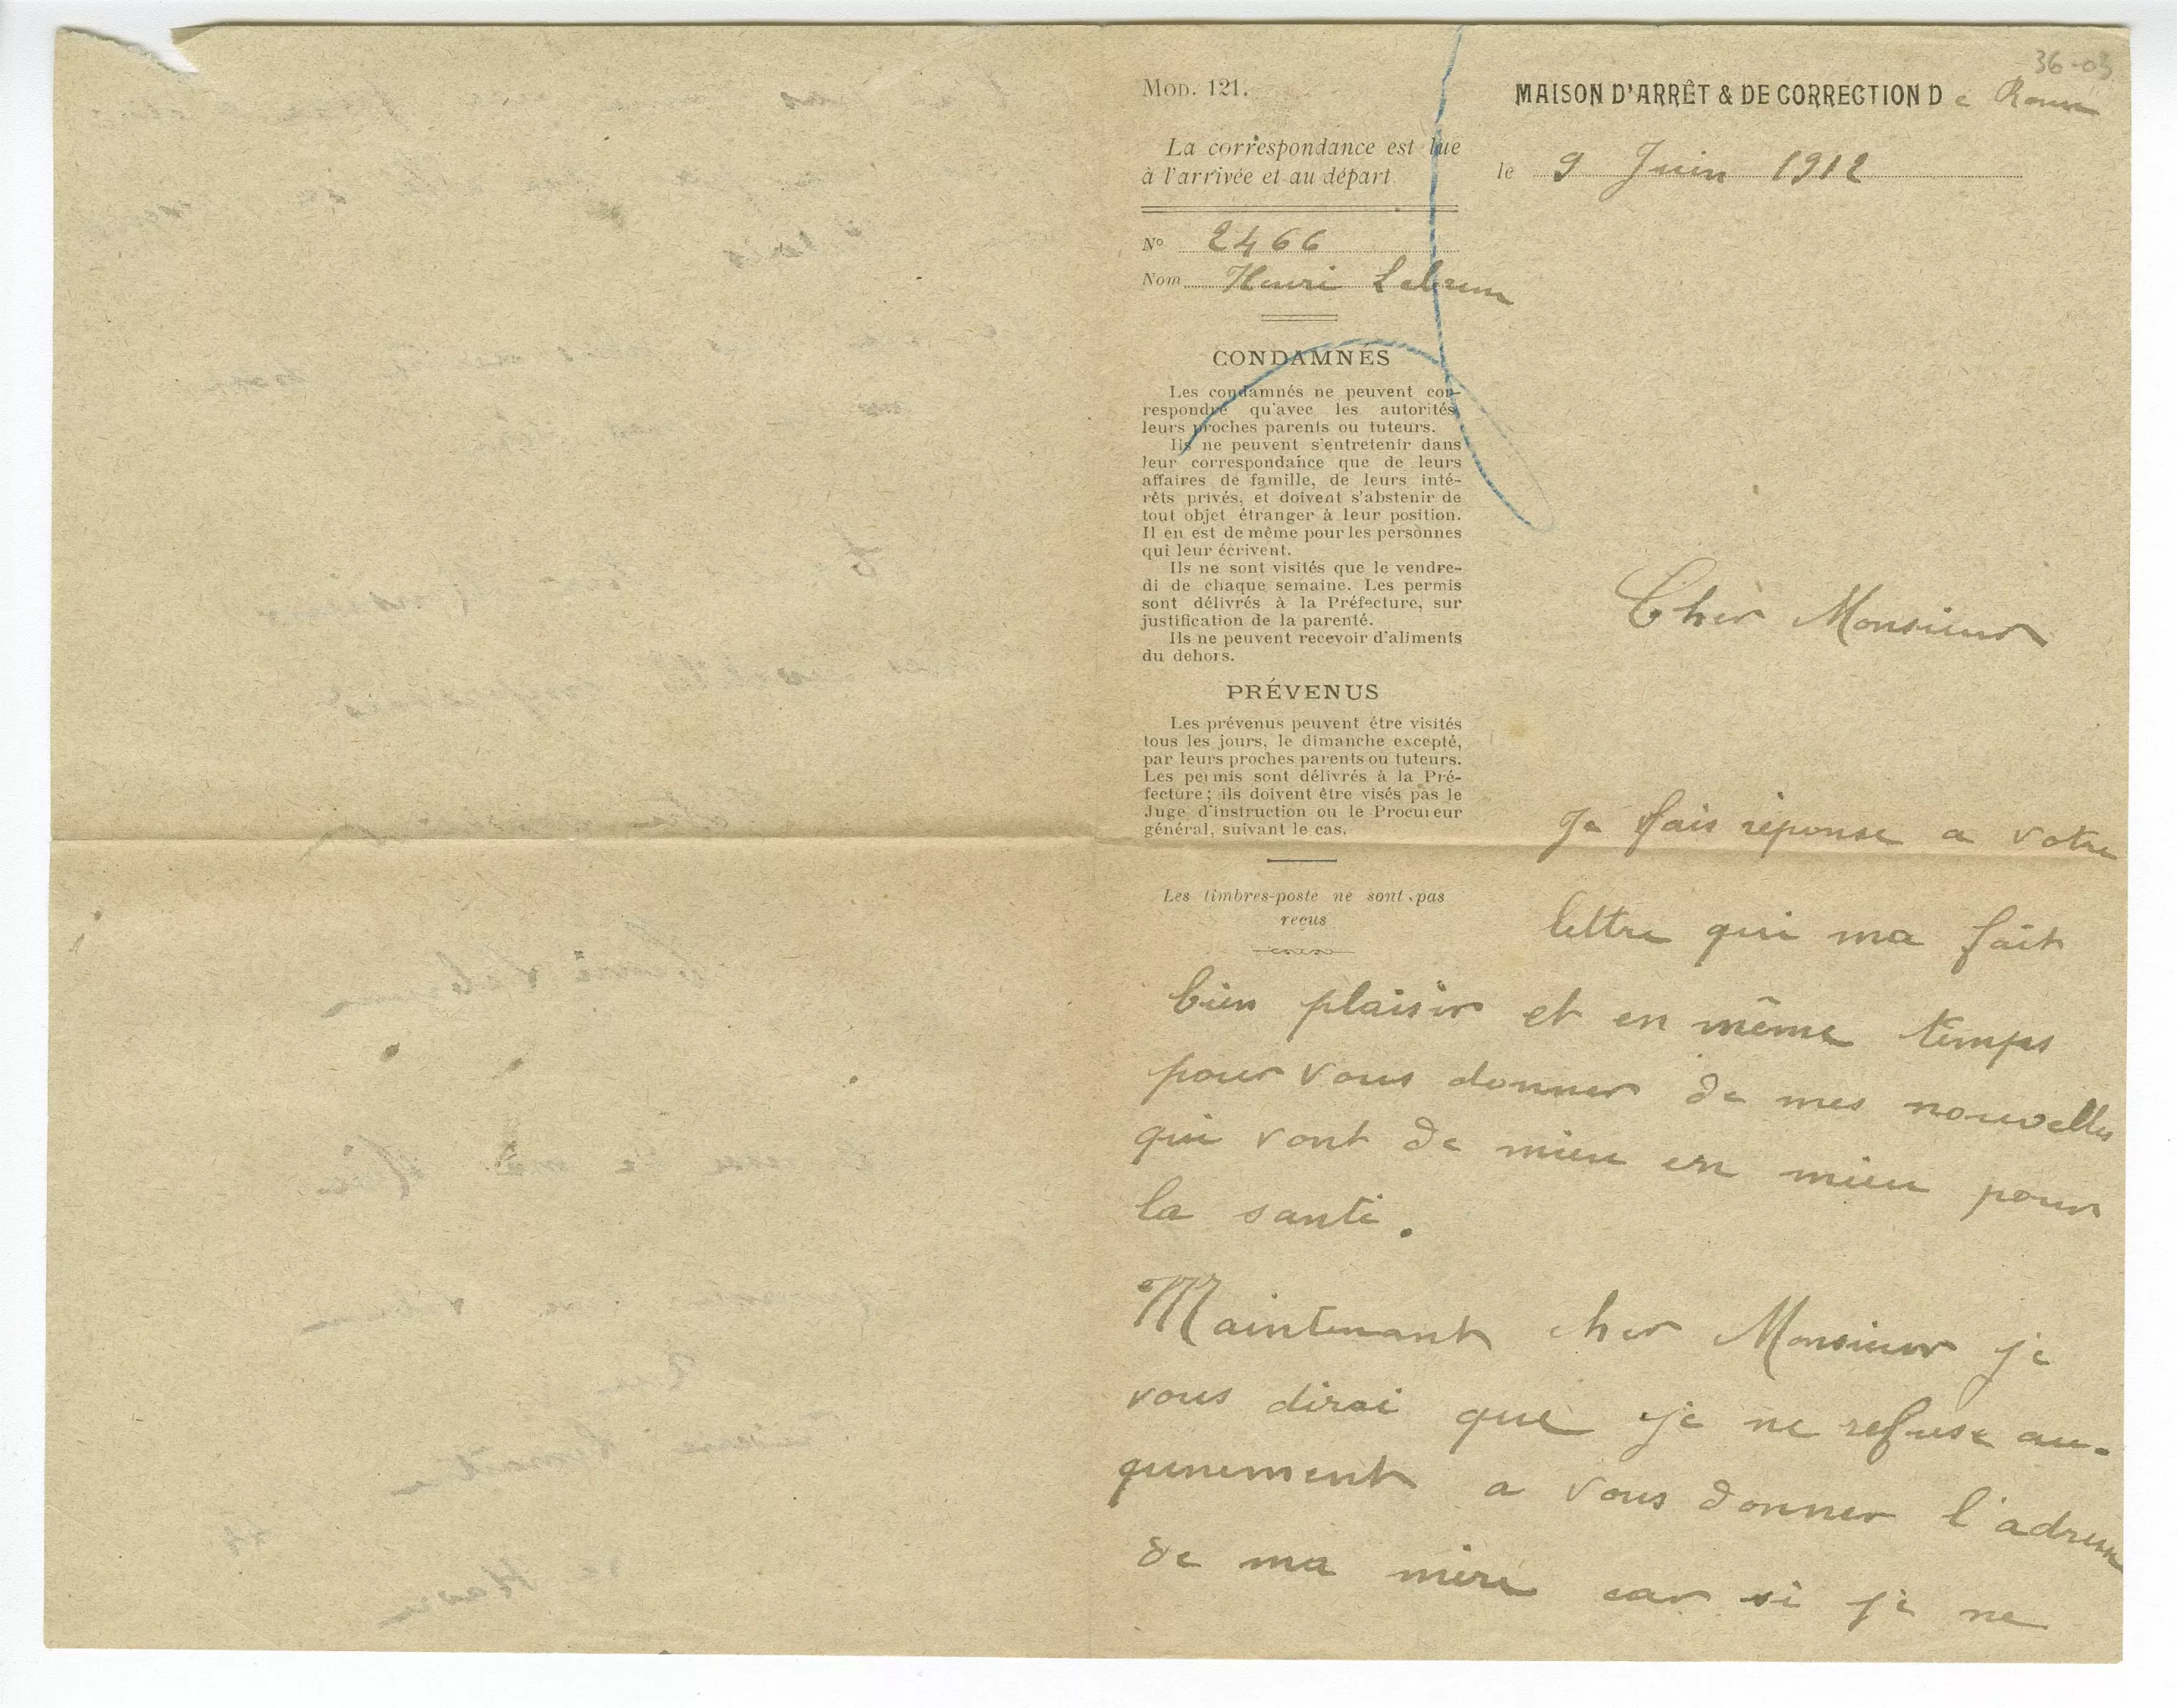 36-03
MOD. 121.
La correspondance est lue
à l'arrivée et au départ
N° 2466
Nom Henri Lebrun
CONDAMNÉS
Les condamnés ne peuvent cor-
respondre qu'avec les autorités,
leurs proches parents ou tuteurs.
Ils ne peuvent s'entretenir dans
leur correspondance que de leurs
affaires de famille, de leurs inté-
rêts privés, et doivent s'abstenir de
tout objet étranger à leur position.
Il en est de même pour les personnes
qui leur écrivent.
Ils ne sont visités que le vendre-
di de chaque semaine. Les permis
sont délivrés à la Préfecture, sur
justification de la parenté.
Ils ne peuvent recevoir d'aliments
du dehors.
PRÉVENUS
Les prévenus peuvent être visités
tous les jours, le dimanche excepté,
par leurs proches parents ou tuteurs.
Les permis sont délivrés à la Pré-
fecture ; ils doivent être visés pas le
Juge d'instruction ou le Procureur
général, suivant le cas.
Les timbres-poste ne sont pas
reçus
MAISON D'ARRÊT & DE CORRECTION De Rouen
le 9 Juin 1912
Cher Monsieur
Je fais réponse a votre
lettre qui ma fait
bien plaisir et en même temps
pour vous donner de mes nouvelles
qui vont de mieu en mieu pour
la santé.
Maintenant cher Monsieur je
vous dirai que je ne refuse au-
qunement a vous donner l'adresse
de ma mère car si je ne